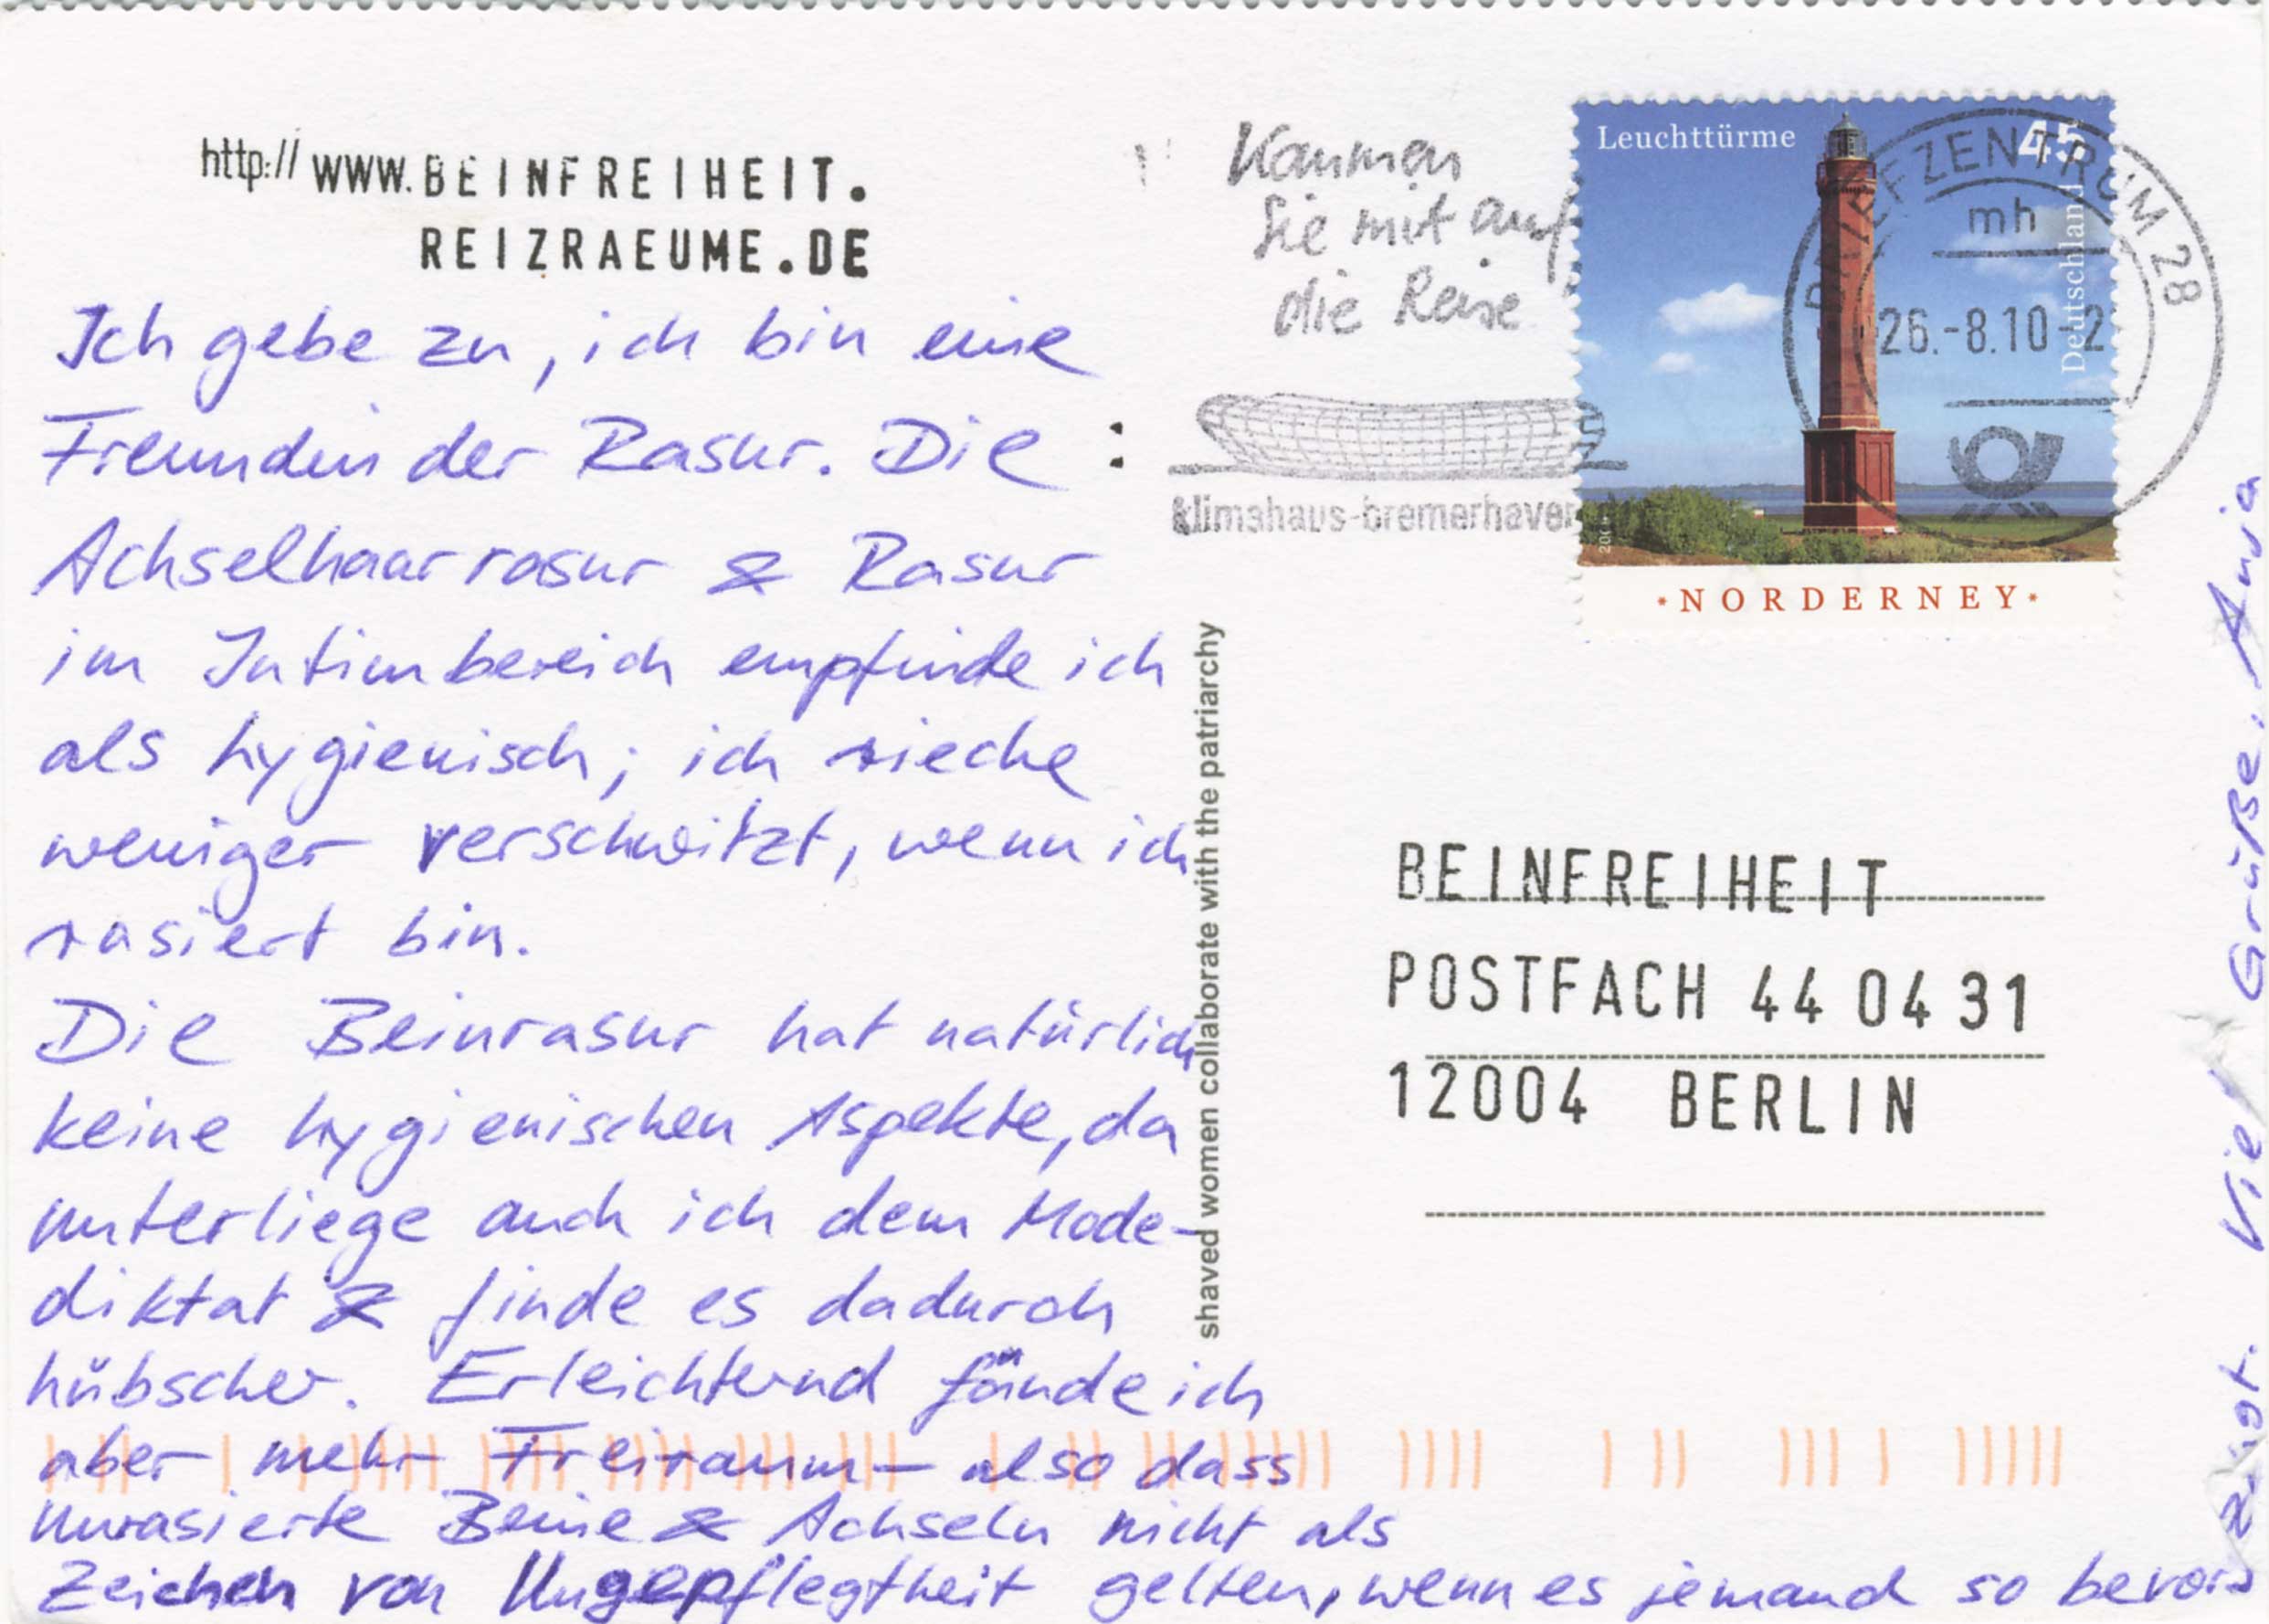 http:// WWW.BEINFREIHEIT.
REIZRAEUME.DE
Ich gebe zu, ich bin eine
Freundin der Rasur. Die
Achselhaarrasur & Rasur
im Intimbereich empfinde ich
als hygienisch; ich rieche
weniger verschwitzt, wenn ich
rasiert bin.
Die Beinrasur hat natürlich
keine hygienischen Aspekte, da
unterliege auch ich dem Mode-
diktat & finde es dadurch
hübscher. Erleichternd fände ich
aber mehr Freiraum – also dass
unrasierte Beine & Achseln nicht als
Zeichen von Ungepflegtheit gelten, wenn es jemand so bevor-
zugt. Viel Grüße, Anja
shaved women collaborate with the patriarchy
Kommen
Sie mit auf
die Reise
klimahaus-bremerhaven
Leuchttürme
45
Deutschland
NORDERNEY
BRIEFZENTRUM 28
mh
26.-8.10-2
BEINFREIHEIT
POSTFACH 44 04 31
12004 BERLIN